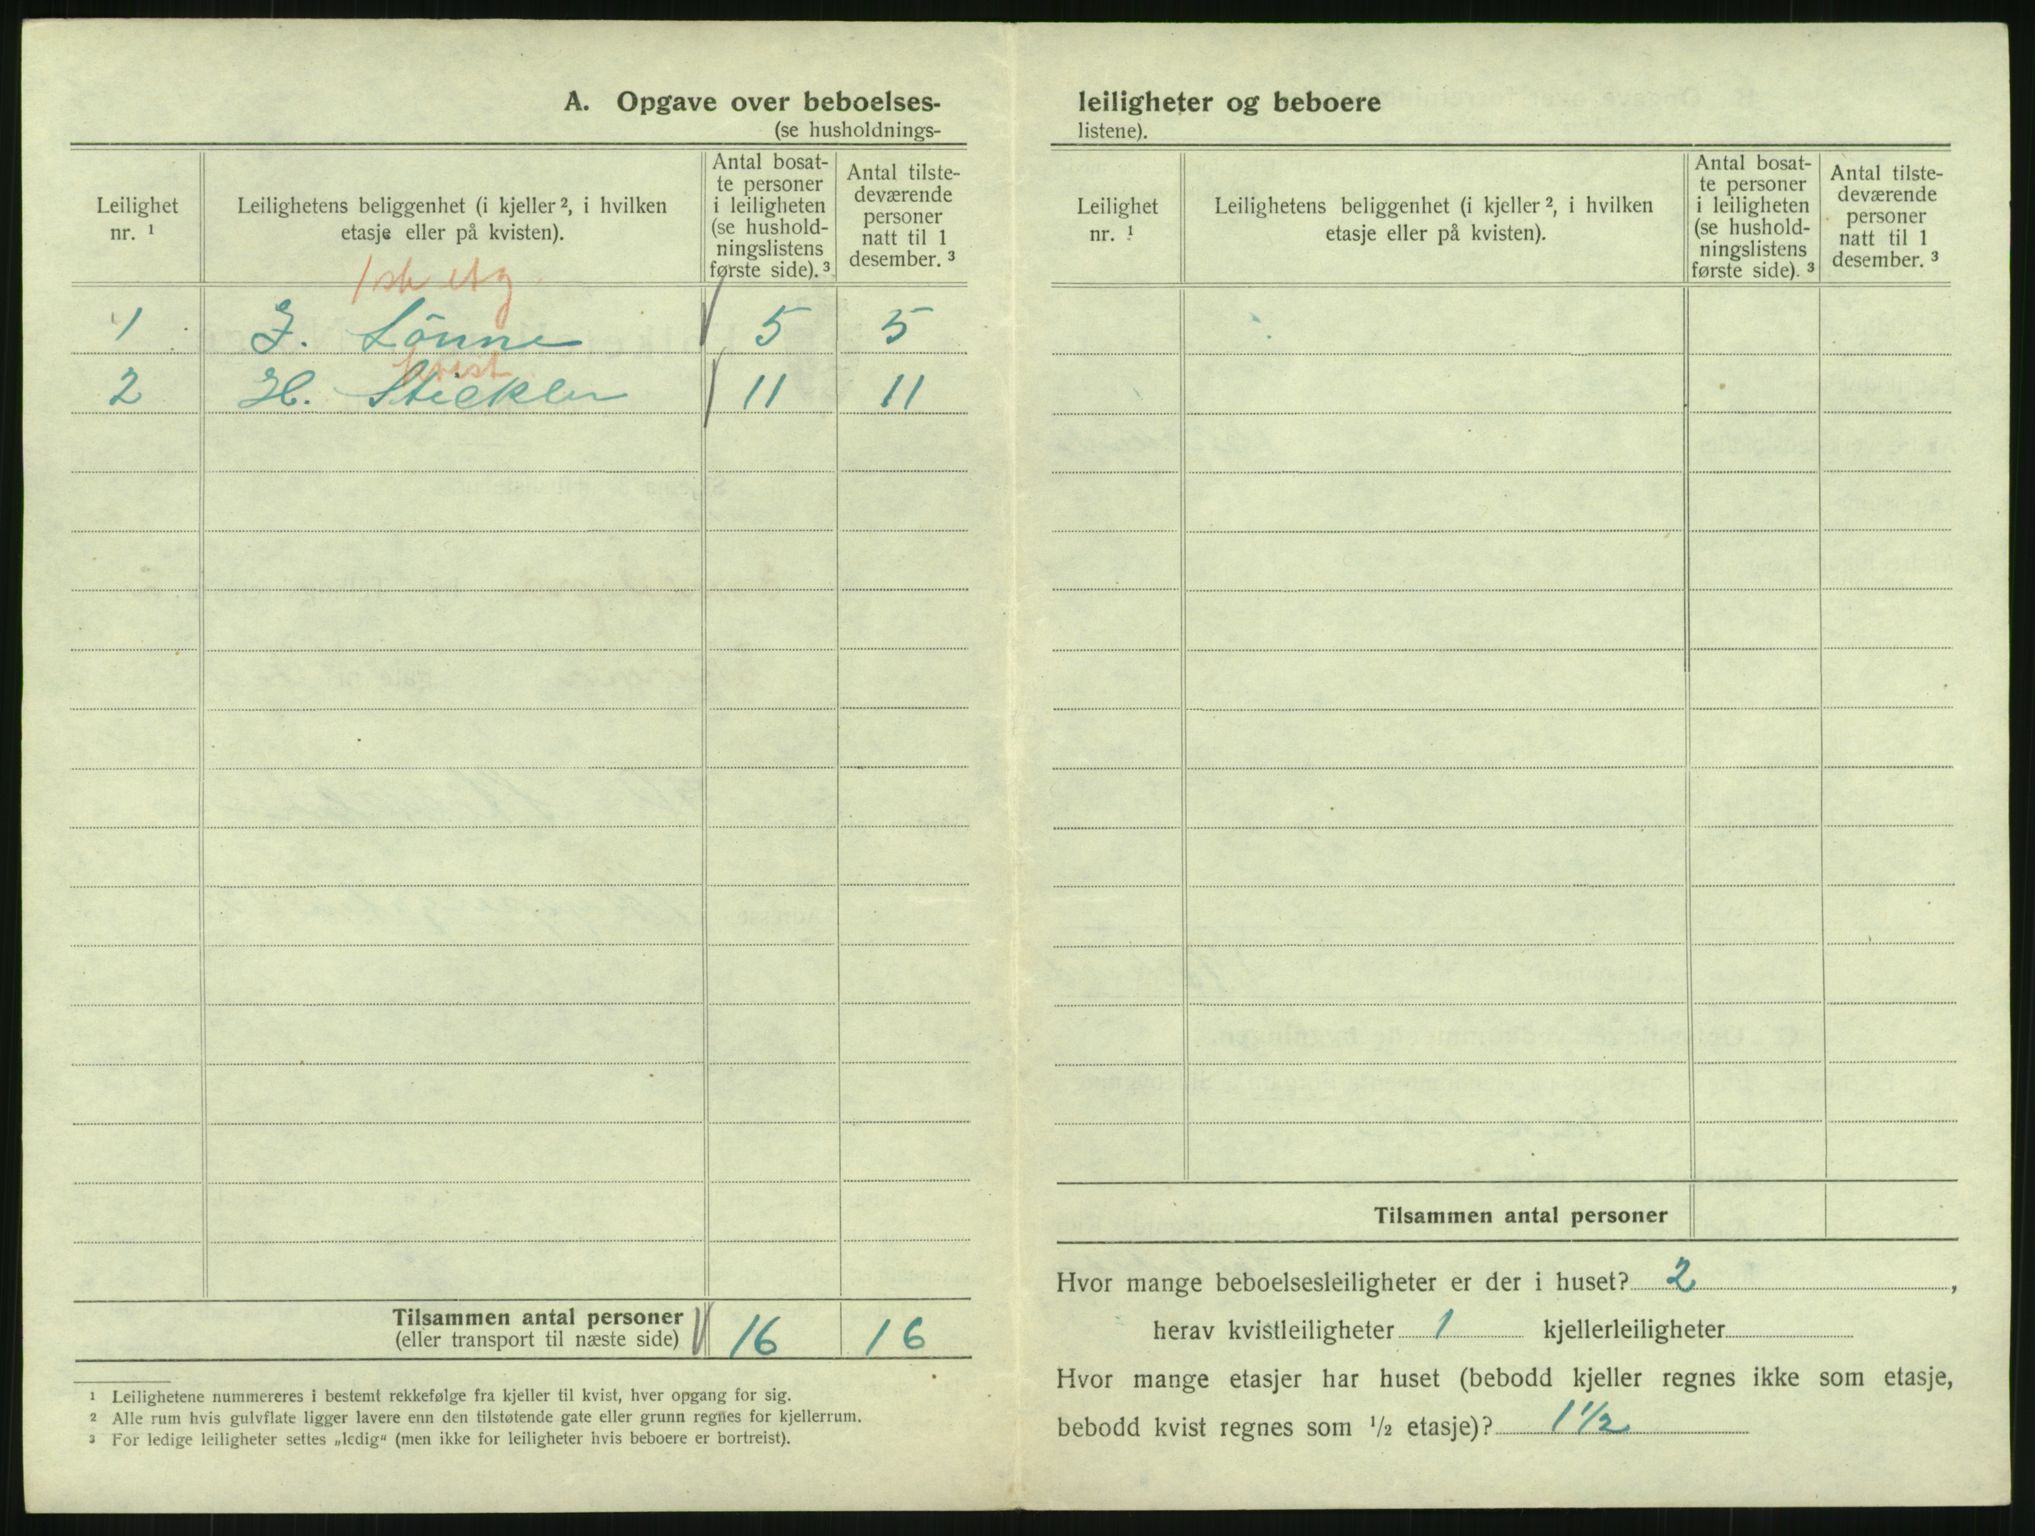 A. Opgave over beboelses-
(se husholdnings-
Leilighet
nr. ¹
Leilighetens beliggenhet (i kjeller ², i hvilken
etasje eller på kvisten).
Antal bosat-
te personer
i leiligheten
(se hushold-
ningslistens
første side). ³
Antal tilste-
deværende
personer
natt til 1
desember. ³
1ste etg.
1 J. Lönne 5 5
kvist
2 H. Stickler 11 11
Tilsammen antal personer
(eller transport til næste side) 16 16
¹ Leilighetene nummereres i bestemt rekkefølge fra kjeller til kvist, hver opgang for sig.
² Alle rum hvis gulvflate ligger lavere enn den tilstøtende gate eller grunn regnes for kjellerrum.
³ For ledige leiligheter settes „ledig“ (men ikke for leiligheter hvis beboere er bortreist).
leiligheter og beboere
listene).
Leilighet
nr. ¹
Leilighetens beliggenhet (i kjeller ², i hvilken
etasje eller på kvisten).
Antal bosat-
te personer
i leiligheten
(se hushold-
ningslistens
første side). ³
Antal tilste-
deværende
personer
natt til 1
desember. ³
Tilsammen antal personer
Hvor mange beboelsesleiligheter er der i huset? 2,
herav kvistleiligheter 1 kjellerleiligheter
Hvor mange etasjer har huset (bebodd kjeller regnes ikke som etasje,
bebodd kvist regnes som ½ etasje)? 1 ½